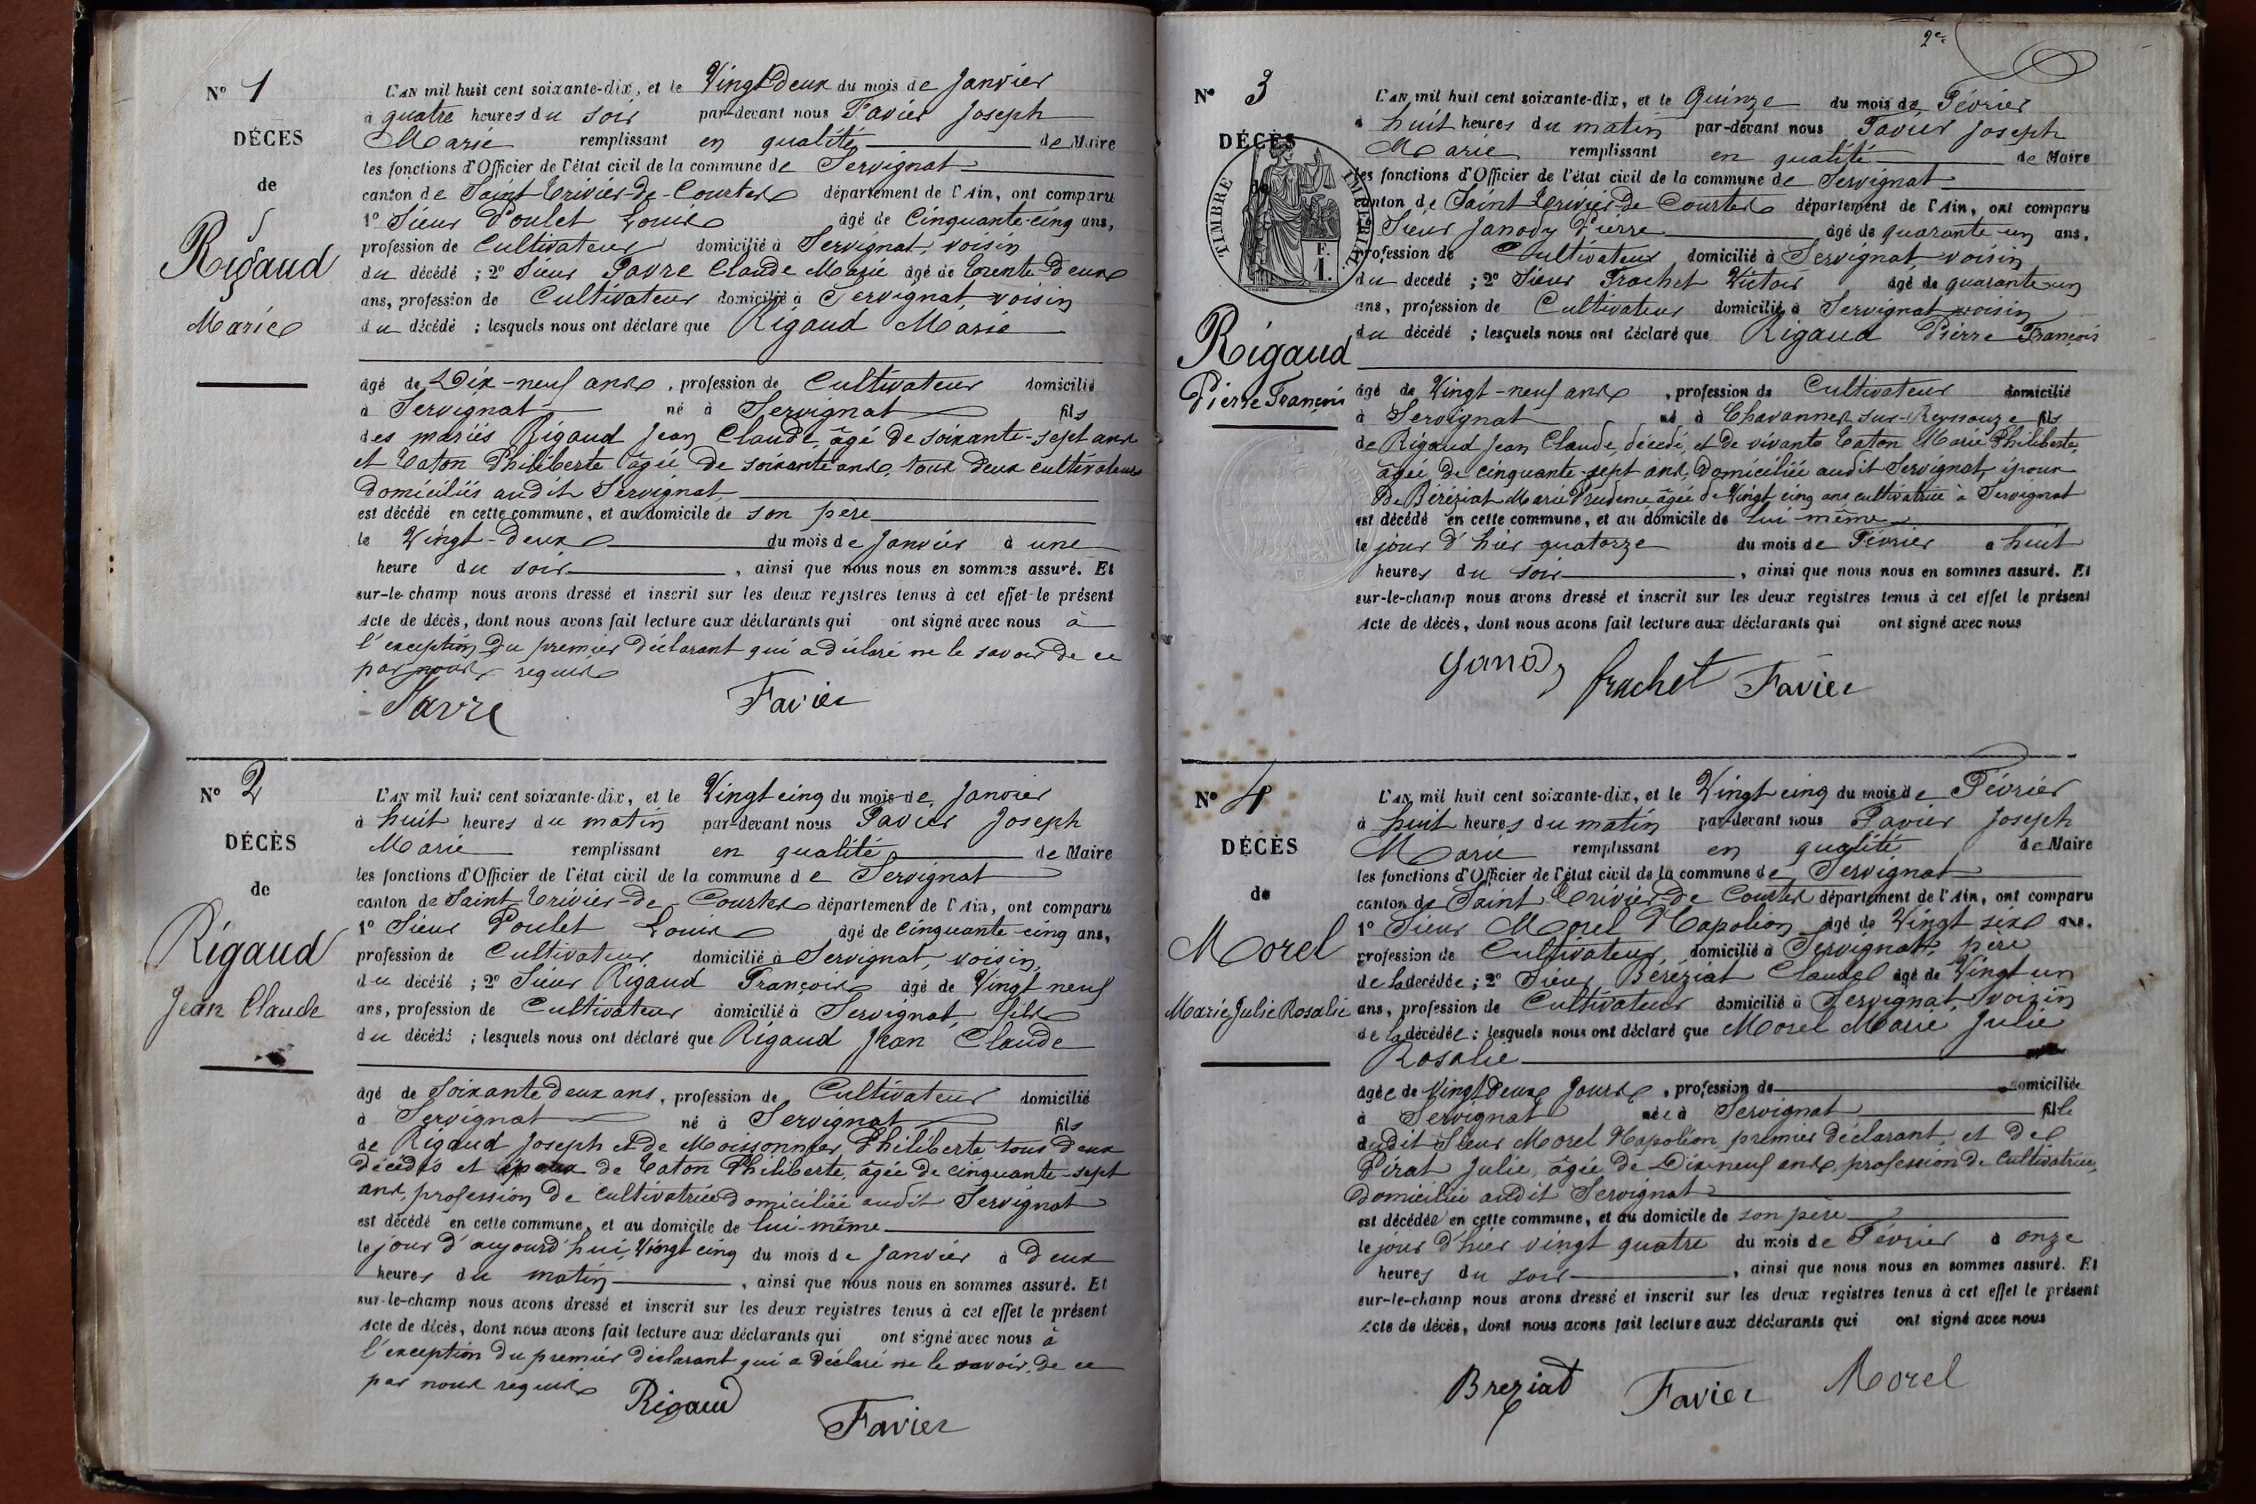 N° 1
DÉCÈS
de
Rigaud
Marie
L'AN mil huit cent soixante-dix, et le Vingt Deux du mois de Janvier
à quatre heures du soir par-devant nous Favier Joseph
Marie remplissant en qualité de Maire
les fonctions d'Officier de l'état civil de la commune de Servignat
canton de Saint Trivier-de-Courtes département de l'Ain, ont comparu
1° Sieur Poulet Louis âgé de Cinquante-cinq ans,
profession de Cultivateur domicilié à Servignat, voisin
du décédé ; 2° Sieur Favre Claude Marie âgé de Trente-Deux
ans, profession de Cultivateur domicilié à Servignat voisin
du décédé ; lesquels nous ont déclaré que Rigaud Marie
âgé de Dix-neuf ans, profession de Cultivateur domicilié
à Servignat né à Servignat fils
des mariés Rigaud Jean Claude, âgé de soixante-sept ans
et Caton Philiberte âgée de soixante ans, tous deux cultivateurs
domiciliés audit Servignat
est décédé en cette commune, et au domicile de son père
le Vingt-deux du mois de Janvier à une
heure du soir, ainsi que nous nous en sommes assuré. Et
sur-le-champ nous avons dressé et inscrit sur les deux registres tenus à cet effet le présent
Acte de décès, dont nous avons fait lecture aux déclarants qui ont signé avec nous à
l'exception du premier déclarant qui a déclaré ne le savoir de ce
par nous requis
Favre Favier
N° 2
DÉCÈS
de
Rigaud
Jean Claude
L'AN mil huit cent soixante-dix, et le Vingt cinq du mois de Janvier
à huit heures du matin par-devant nous Favier Joseph
Marie remplissant en qualité de Maire
les fonctions d'Officier de l'état civil de la commune de Servignat
canton de Saint Trivier-de-Courtes département de l'Ain, ont comparu
1° Sieur Poulet Louis âgé de Cinquante-cinq ans,
profession de Cultivateur, domicilié à Servignat, voisin,
du décédé ; 2° Sieur Rigaud François âgé de Vingt neuf
ans, profession de Cultivateur domicilié à Servignat, fils
du décédé ; lesquels nous ont déclaré que Rigaud Jean Claude
âgé de Soixante deux ans, profession de Cultivateur domicilié
à Servignat né à Servignat fils
de Rigaud Joseph et de Moissonnier Philiberte tous deux
décédés et époux de Caton Philiberte, âgée de cinquante-sept
ans, profession de cultivatrice domiciliée audit Servignat
est décédé en cette commune, et au domicile de lui-même
le jour d'aujourd'hui Vingt cinq du mois de Janvier à Deux
heures du matin, ainsi que nous nous en sommes assuré. Et
sur-le-champ nous avons dressé et inscrit sur les deux registres tenus à cet effet le présent
Acte de décès, dont nous avons fait lecture aux déclarants qui ont signé avec nous à
l'exception du premier déclarant qui a déclaré ne le savoir, de ce
par nous requis
Rigaud Favier
2e
N° 3
DÉCÈS
de
TIMBRE IMPÉRIAL
1 F.
Rigaud
Pierre François
L'AN mil huit cent soixante-dix, et le Quinze du mois de Février
à huit heures du matin par-devant nous Favier Joseph
Marie remplissant en qualité de Maire
les fonctions d'Officier de l'état civil de la commune de Servignat
canton de Saint Trivier-de-Courtes département de l'Ain, ont comparu
Sieur Janody Pierre âgé de quarante-un ans,
profession de Cultivateur domicilié à Servignat voisin
du décédé ; 2° Sieur Frachet Victor âgé de quarante-un
ans, profession de Cultivateur domicilié à Servignat voisin
du décédé ; lesquels nous ont déclaré que Rigaud Pierre François
âgé de Vingt-neuf ans, profession de Cultivateur domicilié
à Servignat né à Chavannes-sur-Reyssouze fils
de Rigaud Jean Claude, décédé, et de vivante Caton Marie Philiberte,
âgée de cinquante-sept ans, domiciliée audit Servignat, époux
de Béréziat Marie Prudence âgée de Vingt cinq ans cultivatrice à Servignat
est décédé en cette commune, et au domicile de lui-même
le jour d'hier quatorze du mois de Février à huit
heures du soir, ainsi que nous nous en sommes assuré. Et
sur-le-champ nous avons dressé et inscrit sur les deux registres tenus à cet effet le présent
Acte de décès, dont nous avons fait lecture aux déclarants qui ont signé avec nous
Janody frachet Favier
N° 4
DÉCÈS
de
Morel
Marie Julie Rosalie
L'AN mil huit cent soixante-dix, et le Vingt cinq du mois de Février
à huit heures du matin par-devant nous Favier Joseph
Marie remplissant en qualité de Maire
les fonctions d'Officier de l'état civil de la commune de Servignat
canton de Saint Trivier-de-Courtes département de l'Ain, ont comparu
1° Sieur Morel Napoléon âgé de Vingt six ans,
profession de Cultivateur, domicilié à Servignat, père
de la décédée ; 2° Sieur Béréziat Claude âgé de Vingt un
ans, profession de Cultivateur domicilié à Servignat voizin
de la décédée : lesquels nous ont déclaré que Morel Marie Julie
Rosalie
âgée de Vingt Deux Jours, profession de domiciliée
à Servignat née à Servignat fille
dudit Sieur Morel Napoléon, premier déclarant, et de
Pirat Julie, âgée de Dix-neuf ans, profession de cultivatrice,
domiciliée audit Servignat
est décédée en cette commune, et au domicile de son père
le jour d'hier vingt quatre du mois de Février à onze
heures du soir, ainsi que nous nous en sommes assuré. Et
sur-le-champ nous avons dressé et inscrit sur les deux registres tenus à cet effet le présent
Acte de décès, dont nous avons fait lecture aux déclarants qui ont signé avec nous
Breziat Favier Morel